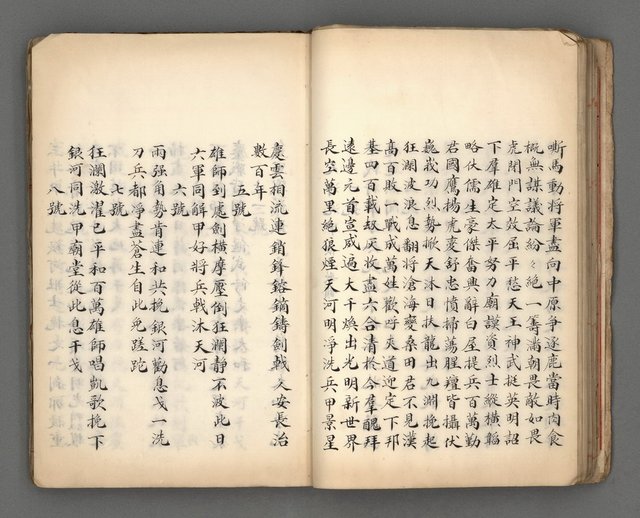 嘶馬動將軍盡向中原爭逐鹿當時肉食
概無謀議論紛々絕一籌滿朝畏敵如畏
虎閉門空效屈平愁天王神武挺英明詔
下羣雄定太平努力廟謨資烈士縱橫韜
略伏儒生豪傑奮興辭白屋提兵百萬勤
君國鷹揚虎變舒忠憤掃蕩腥羶皆攝伏
巍峩功烈勢掀天沐日扶龍出九淵挽起
狂瀾波浪息翻將滄海變桑田君不見漢
高百敗一戰成萬姓歡呼夾道迎定下邦
基四百載奴灭故盡六合清於今羣醜拜
遠邊元首宣威遍大千煥出光明新世界
長空萬里絕狼煙天河明淨洗兵甲景星
慶雲相流連銷鋒鎔鏑鑄劍戟久安長治
數百年
五號
雄師到處劍橫摩壓倒狂瀾靜不波此日
六軍同解甲好將兵戟沐天河
六號
兩强角勢肯連和共挽銀河勸息戈一洗
刀兵都淨盡蒼生自此免蹉跎
七號
狂瀾激濯已平和百萬雄師唱凱歌挽下
銀河同洗甲廟堂從此息干戈
八號